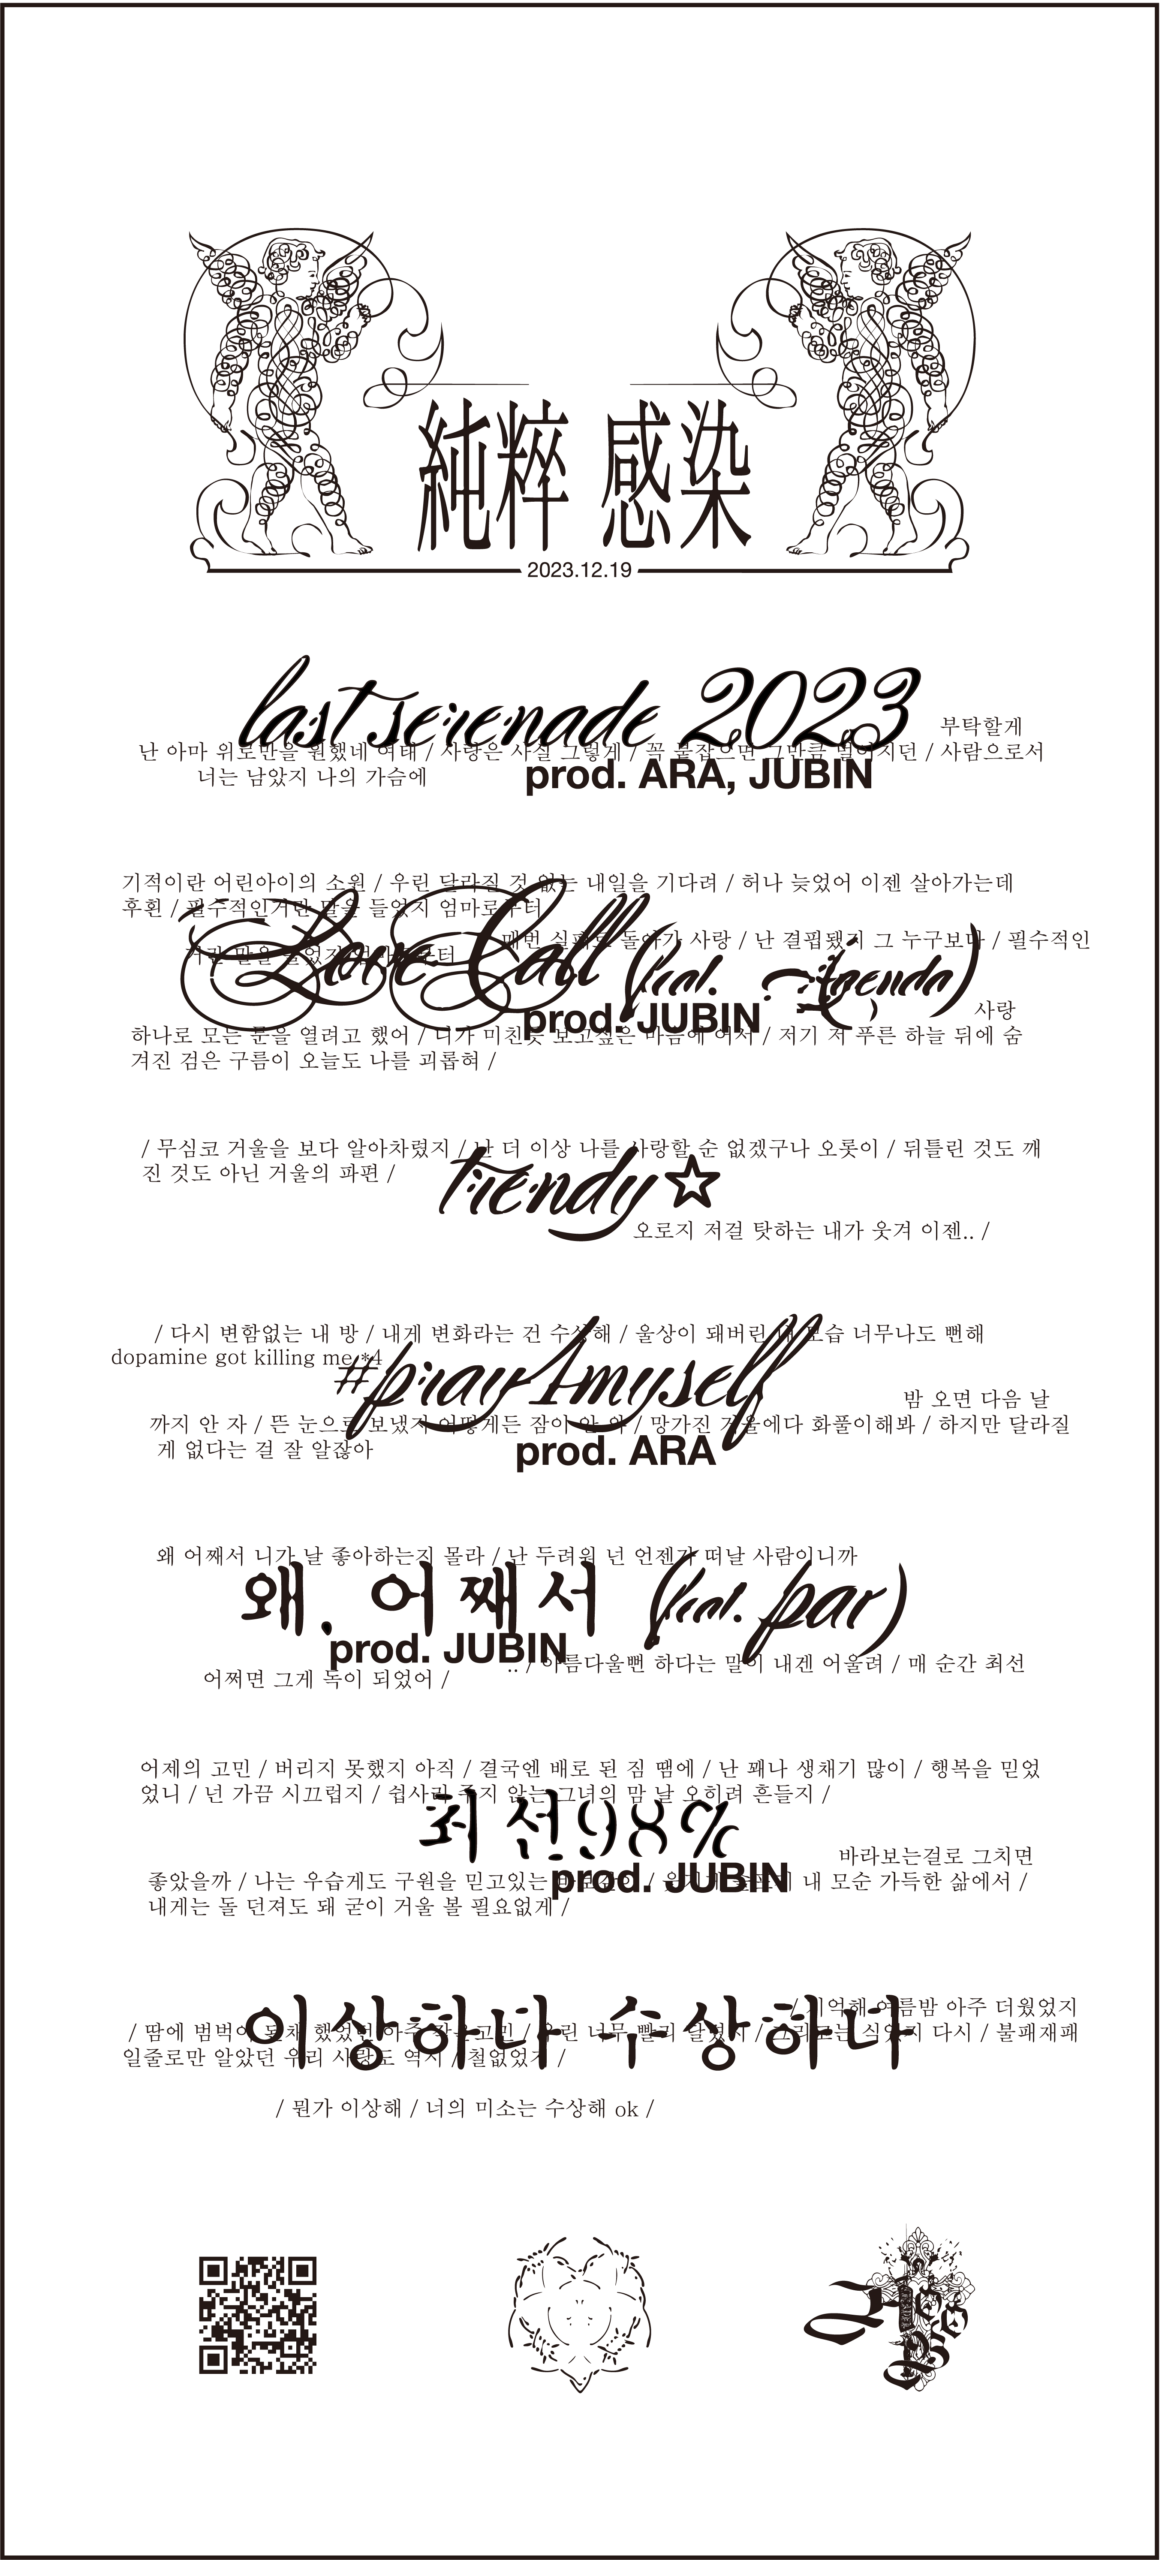 純粹 感染
2023.12.19
last serenade 2023
부탁할게
난 아마 위로만을 원했네 여태 / 사랑은 사실 그렇게 / 꼭 붙잡으면 그만큼 멀어지던 / 사람으로서
prod. ARA, JUBIN
너는 남았지 나의 가슴에
기적이란 어린아이의 소원 / 우린 달라질 것 없는 내일을 기다려 / 허나 늦었어 이젠 살아가는데
후회 / 필수적인거란 말을 들었지 엄마로부터
매번 실패로 돌아가 사랑 / 난 결핍됐지 그 누구보다 / 필수적인
거란 말을 들었지 엄마로부터
Love Call (feat.
prod. JUBIN
사랑
하나로 모든 문을 열려고 했어 / 니가 미친듯 보고싶은 마음에 여서 / 저기 저 푸른 하늘 뒤에 숨
겨진 검은 구름이 오늘도 나를 괴롭혀 /
/ 무심코 거울을 보다 알아차렸지 / 난 더 이상 나를 사랑할 순 없겠구나 오롯이 / 뒤틀린 것도 깨
진 것도 아닌 거울의 파편 /
trendy☆
오로지 저걸 탓하는 내가 웃겨 이젠.. /
/ 다시 변함없는 내 방 / 내게 변화라는 건 수상해 / 울상이 돼버린 내 모습 너무나도 뻔해
dopamine got killing me *4
#pray4myself
밤 오면 다음 날
까지 안 자 / 뜬 눈으로 보냈지 어떻게든 잠이 안 와 / 망가진 거울에다 화풀이해봐 / 하지만 달라질
게 없다는 걸 잘 알잖아
prod. ARA
왜 어째서 니가 날 좋아하는지 몰라 / 난 두려워 넌 언젠가 떠날 사람이니까
왜, 어째서 (feat. par)
prod. JUBIN
.. / 아름다울뻔 하다는 말이 내겐 어울려 / 매 순간 최선
어쩌면 그게 독이 되었어 /
어제의 고민 / 버리지 못했지 아직 / 결국엔 배로 된 짐 땜에 / 난 꽤나 생채기 많이 / 행복을 믿었
었니 / 넌 가끔 시끄럽지 / 쉽사리 주지 않는 그녀의 맘 날 오히려 흔들지 /
최선98%
바라보는걸로 그치면
좋았을까 / 나는 우습게도 구원을 믿고있는 / 내 모순 가득한 삶에서 /
prod. JUBIN
내게는 돌 던져도 돼 굳이 거울 볼 필요없게 /
이상하나 수상하나
/ 기억해 여름밤 아주 더웠었지
/ 땀에 범벅이 된채 했었던 아주 작은 고민 / 우린 너무 빨리 달렸지 / 그리고는 식었지 다시 / 불패재패
일줄로만 알았던 우리 사랑도 역시 / 철없었지 /
/ 뭔가 이상해 / 너의 미소는 수상해 ok /